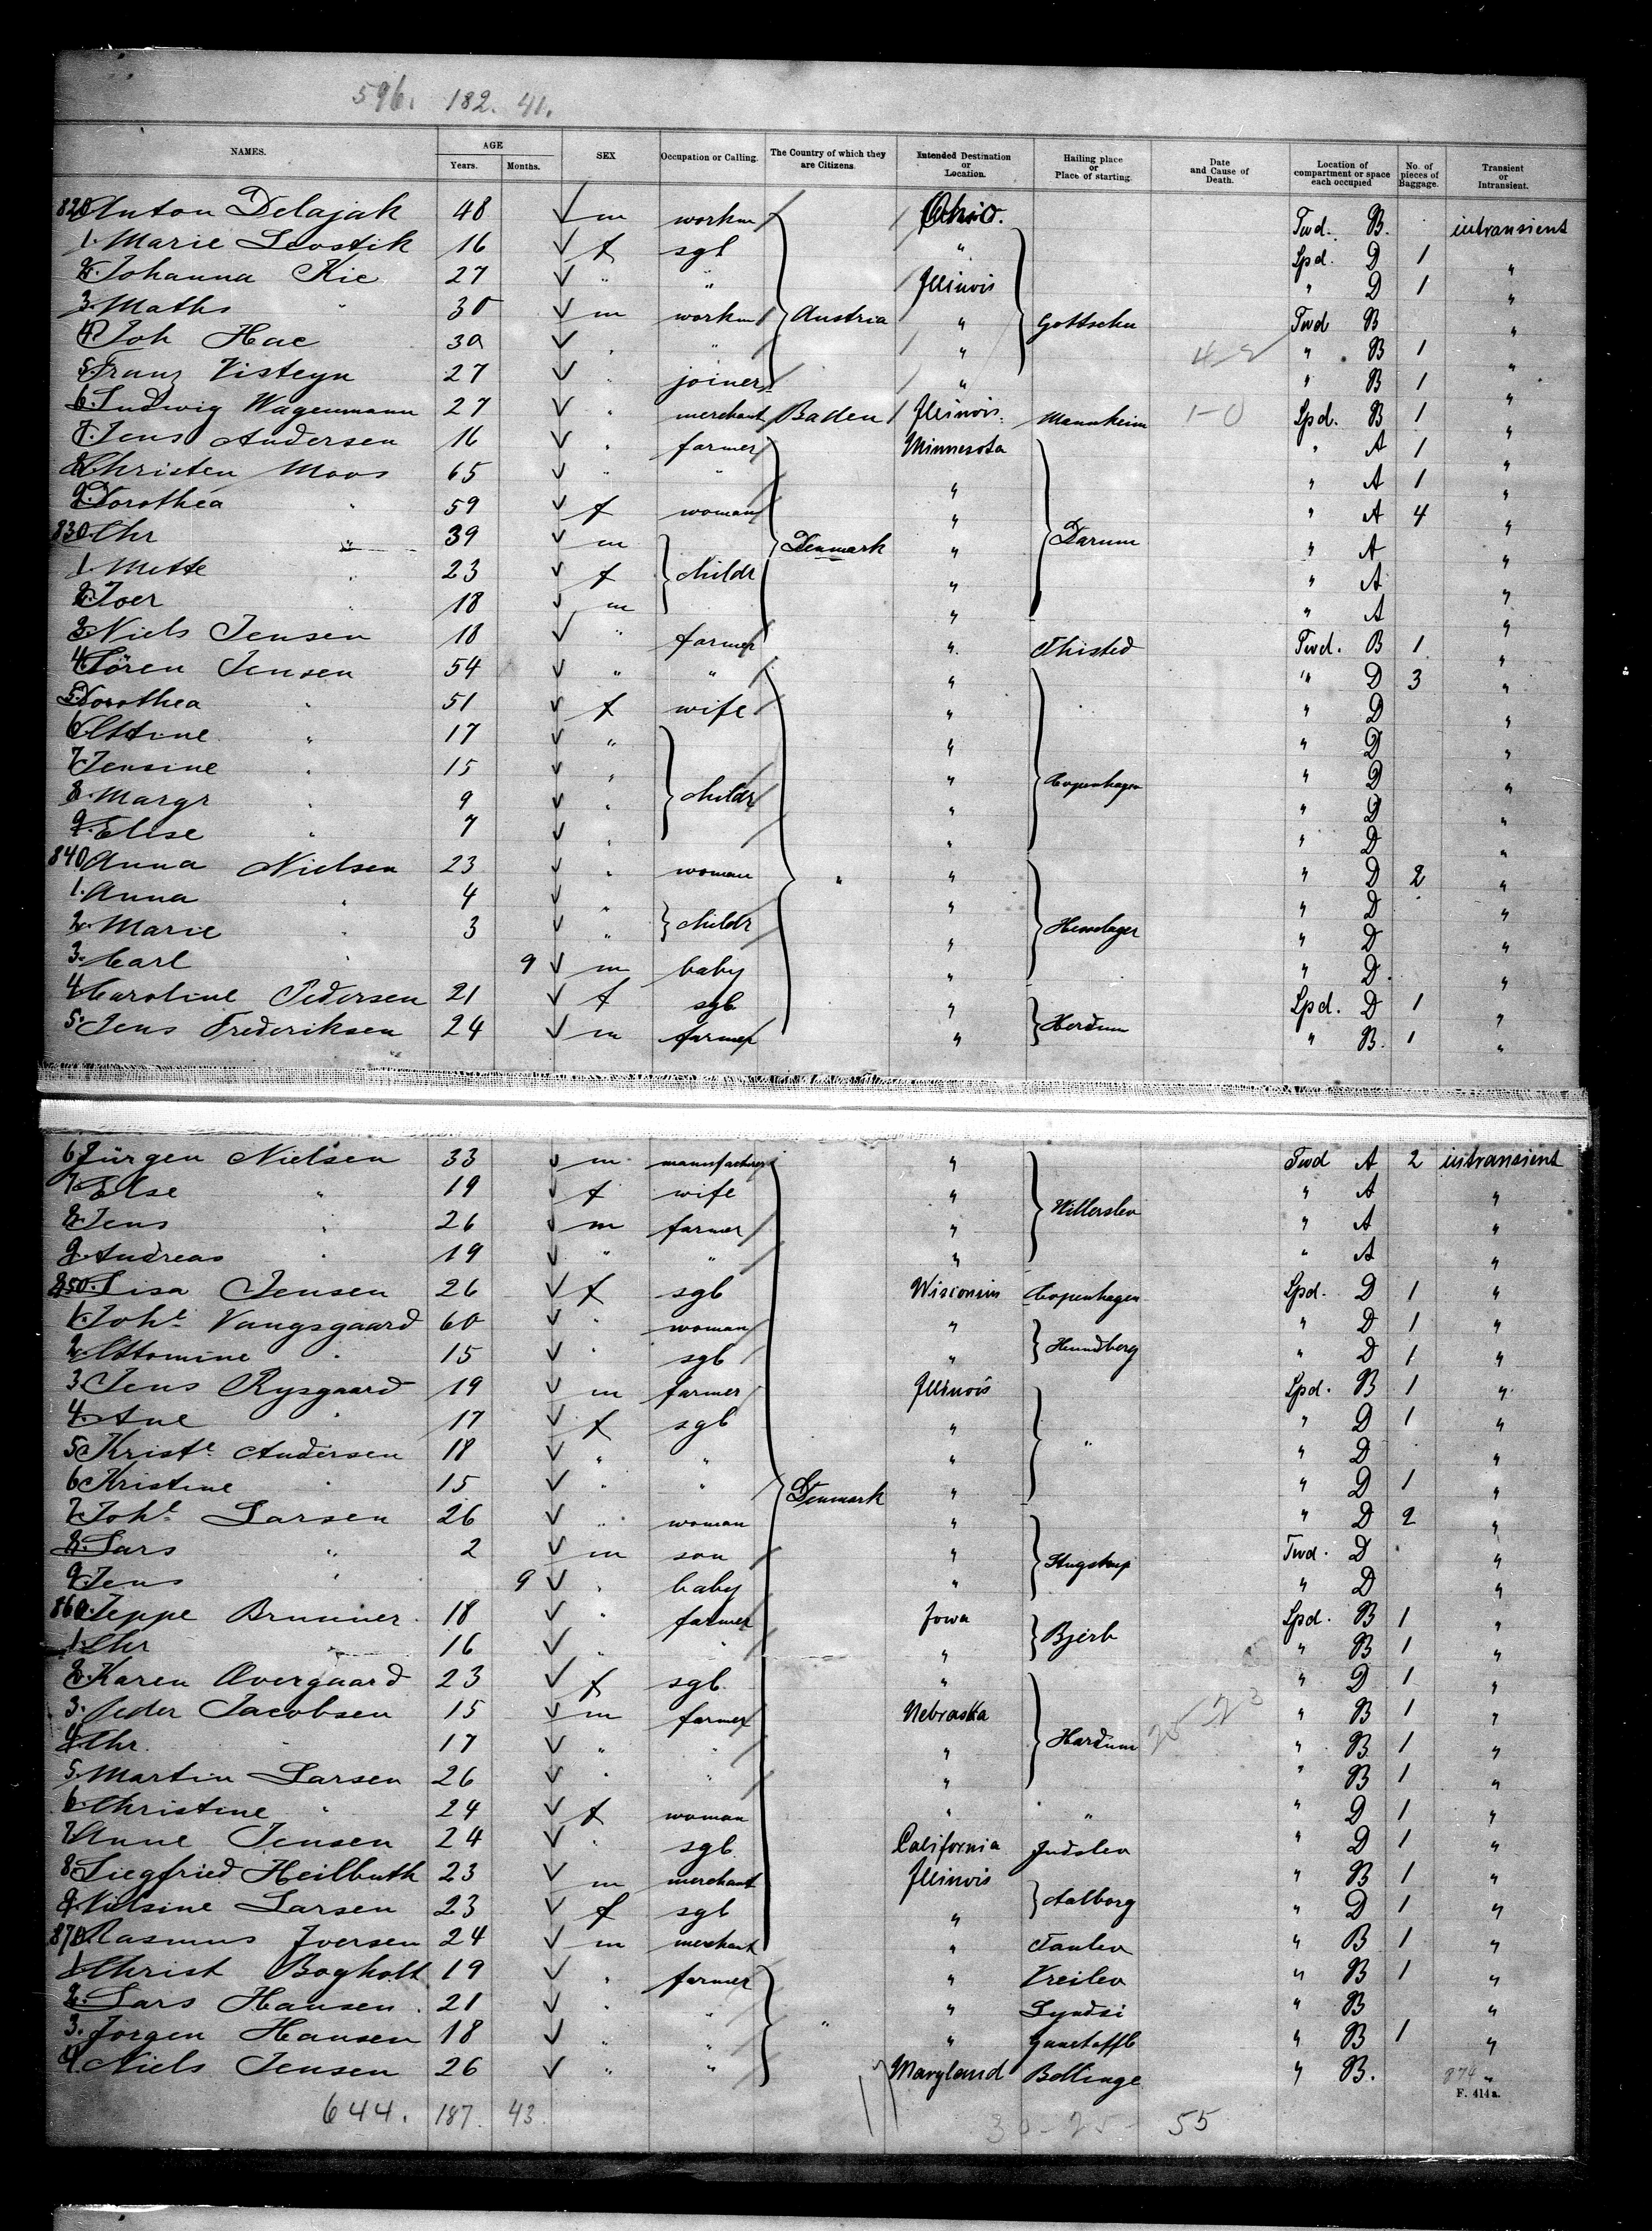 596. 182. 41.
NAMES. AGE Years. Months. SEX Occupation or Calling. The Country of which they are Citizens. Intended Destination or Location. Hailing place or Place of starting. Date and Cause of Death. Location of compartment or space each occupied No. of pieces of Baggage. Transient or Intransient.
820 Anton Delajak 48 m workm Ohio. Twd. B. intransient
1. Marie 16 f sgl " Spd. D 1 "
2. Johanna Kie 27 " " Illinois " D 1 "
3. Maths " 30 m workm Austria " Gottschu Twd B "
4. Joh Hac 30 " " " " B 1 "
5. Franz Visteyn 27 " joiner " " B 1 "
6. Ludwig Wagenmann 27 " merchant Baden Illinois. Mannheim 1-0 Spd. B 1 "
7. Jens Andersen 16 " farmer Minnesota " A 1 "
8. Christen Moos 65 " " " " A 1 "
9. Dorothea " 59 f woman " " A 4 "
830. Chr " 39 m Denmark " Darum " A "
1. Mette " 23 f childr " " A "
2. Iver " 18 m " " A "
3. Niels Jensen 18 " farmer " Thisted Twd. B 1 "
4. Sören Jensen 54 " " " " D 3 "
5. Dorothea " 51 f wife " " D "
6. Ottine " 17 " " " D "
7. Jensine " 15 " " Copenhagen " D "
8. Margr " 9 " childr " " D "
9. Elise " 7 " " " D "
840 Anna Nielsen 23 " woman " " " D 2 "
1. Anna " 4 " " " D "
2. Marie " 3 " childr " " D "
3. Carl " 9 m baby " " D "
4. Caroline Pedersen 21 f sgl " Spd. D 1 "
5. Jens Frederiksen 24 m farmer " Herdum " B. 1 "
6. Jürgen Nielsen 33 m manufacturer " Twd A 2 intransient
7. Else " 19 f wife " Willerslev " A "
8. Jens " 26 m farmer " " A "
9. Andreas " 19 " " " " A "
850. Lisa Jensen 26 f sgl Wisconsin Copenhagen Spd. D 1 "
1. Johe Vangsgaard 60 " woman " " D 1 "
2. Ottomine " 15 " sgl " Hundborg " D 1 "
3. Jens Rysgaard 19 m farmer Illinois Spd. B 1 "
4. Ane " 17 f sgl " " D 1 "
5. Kriste Andersen 18 " " " " " D "
6. Kristine " 15 " " Denmark " " D 1 "
7. Johe Larsen 26 " woman " " D 2 "
8. Lars " 2 m son " Twd. D "
9. Jens " 9 " baby " " D "
860. Jeppe Brunner. 18 " farmer Iowa Spd. B 1 "
1. Chr " 16 " " " Bjerb " B 1 "
2. Karen Overgaard 23 f sgl. " " D 1 "
3. Peder Jacobsen 15 m farmer Nebraska " B 1 "
4. Chr. " 17 " " " Hardum " B 1 "
5. Martin Larsen 26 " " " " B 1 "
6. Christine " 24 f woman " " " D 1 "
7. Anne Jensen 24 " sgl. California Judslev " D 1 "
8. Siegfried Heilbuth 23 m merchant Illinois " B 1 "
9. Nielsine Larsen 23 f sgl " Aalborg " D 1 "
870. Rasmus Iversen 24 m merchant " Taulov " B 1 "
1. Christ Bogholt 19 " farmer " Vreilev " B 1 "
2. Lars Hansen. 21 " " " Lyndsi " B "
3. Jorgen Hansen 18 " " " " B 1 "
4. Niels Jensen 26 " " Maryland Bellinge " B. "
874
F. 414a.
644. 187. 43. 30-25- 55